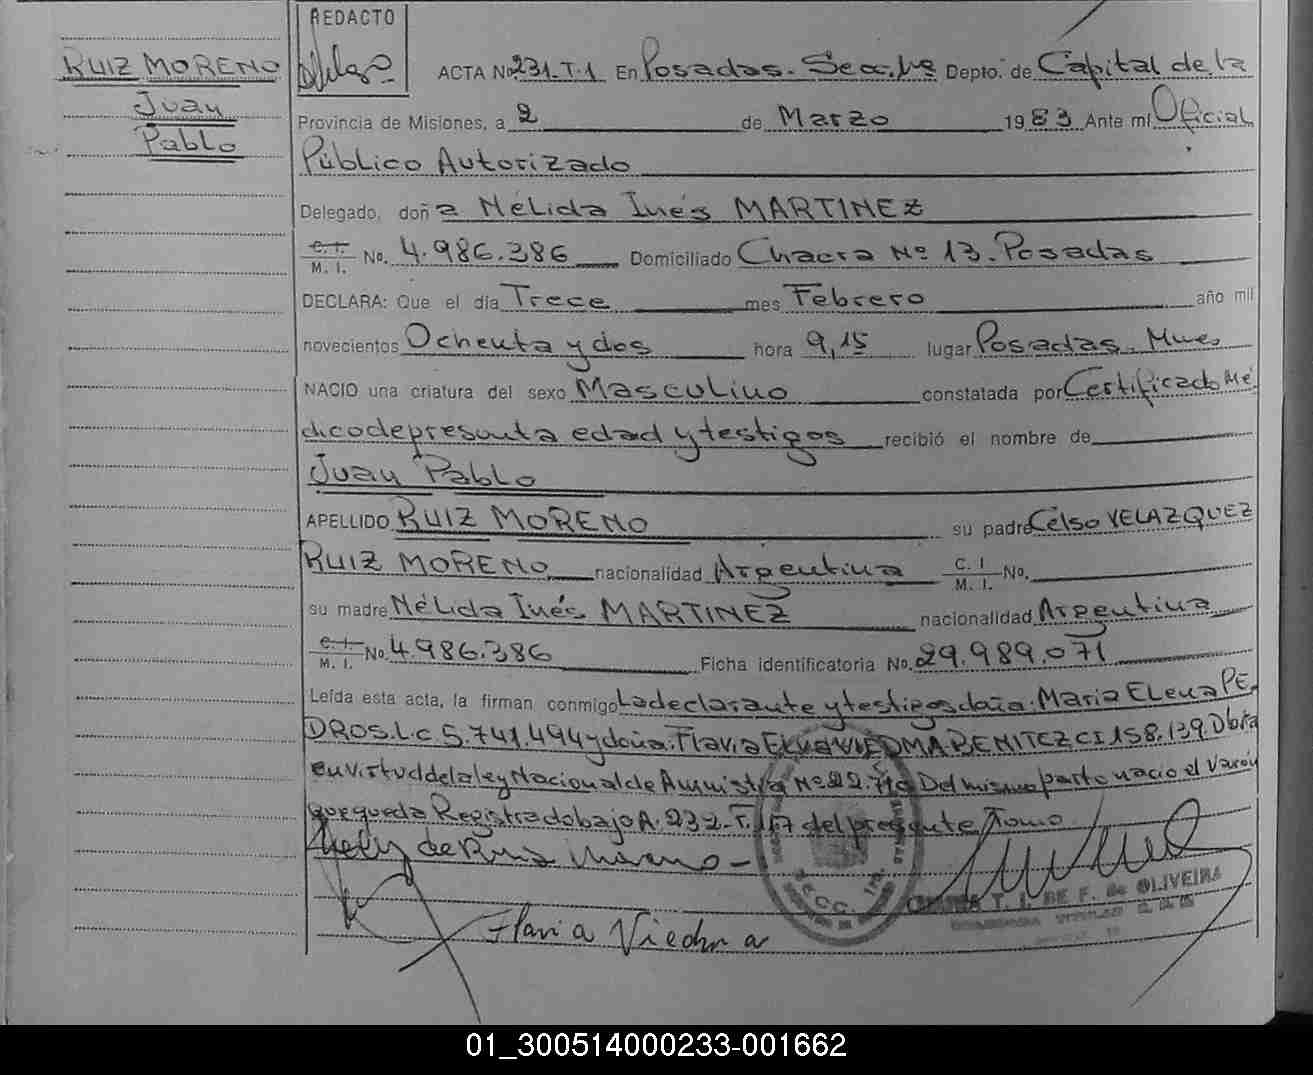 REDACTO
RUIZ MORENO
Juan
Pablo
ACTA No 231-T-1 En Posadas. Sec. 1ra Depto. de Capital de la
Provincia de Misiones, a 2 de Marzo 1983 Ante mí Oficial
Público Autorizado
Delegado, doña Nélida Inés MARTINEZ
C. I.
M. I. No. 4.986.386 Domiciliado Chacra Nº 13. Posadas
DECLARA: Que el día Trece mes Febrero año mil
novecientos Ochenta y dos hora 9,15 lugar Posadas. Mnes
NACIO una criatura del sexo Masculino constatada por Certificado Mé
dico de presunta edad y testigos recibió el nombre de
Juan Pablo
APELLIDO RUIZ MORENO su padre Celso VELAZQUEZ
RUIZ MORENO nacionalidad Argentina C. I
M. I. No.
su madre Nélida Inés MARTINEZ nacionalidad Argentina
C. I.
M. I. No. 4.986.386 Ficha identificatoria No. 29.989.071
Leída esta acta, la firman conmigo La declarante y testigos doña: Maria Elena PE
DROS.L.C 5.741.494 y doña: Flavia Elva VIEDMA BENITEZ CI 158.139. D
en virtud de la ley Nacional de Amnistia Nº 22. Del mismo parto nacio el Varón
que queda Registrado bajo A. 232-T. del presente Tomo
Nely de Ruiz Moreno -
Flavia Viedma
T. I. DE F. de OLIVEIRA
01_300514000233-001662